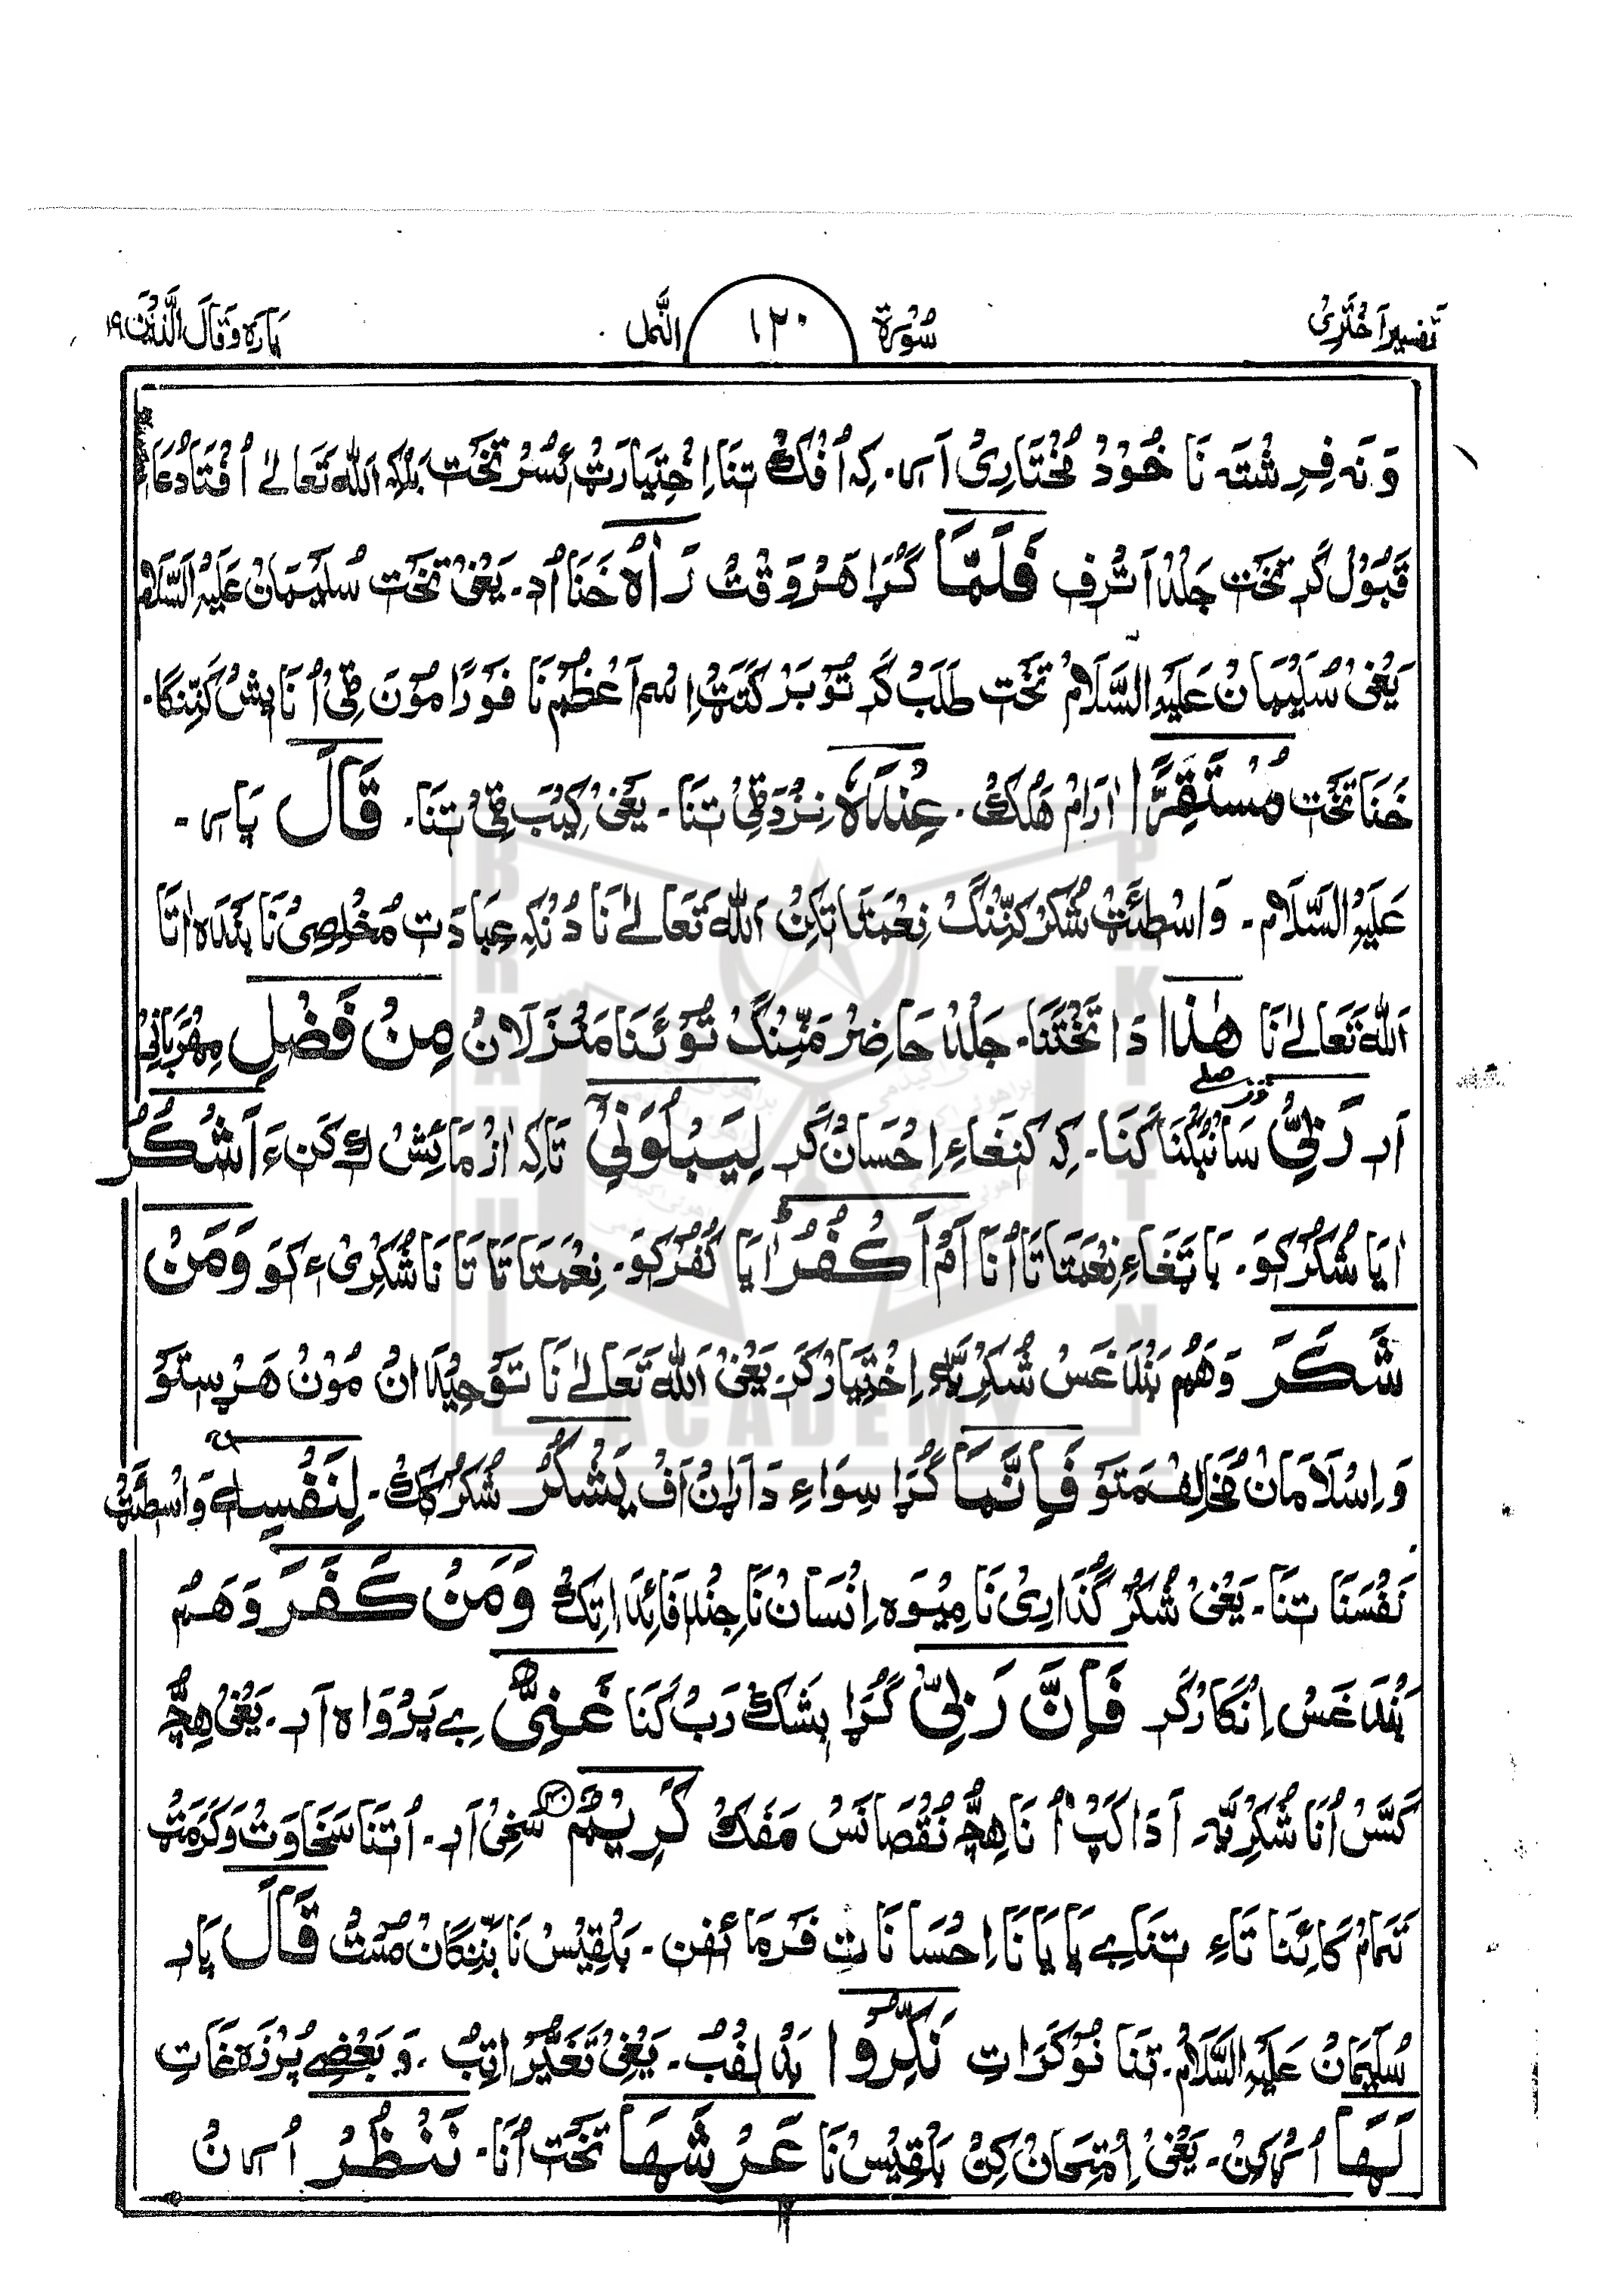 تفسیر اَختَرِی سُورۃ ١٢٠ النَّمل پَارَہ وَقَالَ الَّذِیْنَ ١٩
وَ نَہ فِرِشْتَہ نَا خُوْدْ مُخْتَارِیْ اَس. کِہ اُفْکْ تِنَا اِخْتِیَارَتْ کَسُرْ تَخْت بَلْکِہ اَللّٰہ تَعَالٰے اُفْتَا دُعَاءِ
قَبُوْل کَرِ تَخْت جَلْد اَتْرِف فَلَمَّا گُڑَا ھَرْ وَقْتْ رَاٰہُ خَنَا اُدِ. یَعْنِیْ تَخْت سُلَیْمَانْ عَلَیْہِ السَّلَام
یَعْنِیْ سُلَیْمَانْ عَلَیْہِ السَّلَامْ تَخْت طَلَبْ کَرِ تُوْ بَرَکَتَتْ اِسْم اَعْظَمْ نَا فَوْرًا مُوْن ٹِیْ اُنَا پِشْ کَنِّنْگَا.
خَنَا تَخْت مُسْتَقِرًّا اٰرَامْ ھَلْکْ. عِنْدَہٗ نِزْد ٹِیْ تِنَا. یَعْنِیْ کِیَبْ ٹِیْ تِنَا. قَالَ پَارَ.
عَلَیْہِ السَّلَام. وَاسْطَئَتْ شُکْر کَنِّنْگْ نِعْمَتَا تَکِنْ اَللّٰہ تَعَالٰے نَا دُنْکِہ عِبَادَت مُخْلِصِیْ نَا بَنْدَہ اٰتَا
اَللّٰہ تَعَالٰے نَا ھٰذَا دَا تَخْتَنَا. جَلْد حَاضِرْ مَنِّنْگْ تُوْ ئَنَا مَنْزَلَانْ مِنْ فَضْلِ مِہْرَبَانِیْ
اَرِ رَبِّیْ سَانْبُکْنَا کَنَا. کِہ کَنغَاءِ اِحْسَانْ کَرِ لِیَبْلُوَنِیْ تَاکِہ اٰزْمَائِشْ کے کَنءَ اَشْکُرُ
اٰیَا شُکُرْ کَوَ. بَاتَغَاءِ نِعْمَتَاتَا اُنَا اَمْ اَکْفُرُ اٰیَا کُفْر کَوَ. نِعْمَتَاتَا تَا نَاشُکْرِیْءِ کَوَ وَمَنْ
شَکَرَ وَھَمْ بَنْدَغَسْ شُکْرِیَّہ اِخْتِیَارْ کَرِ. یَعْنِیْ اَللّٰہ تَعَالٰے نَا تَوْحِیْدَانْ مُوْنْ ھَرْسِتَوْ
وَ اِسْلَامَانْ مُخَالِفْ مَتَوْ فَاِنَّمَا گُڑَا سِوَاءِ دَاڑَانْ اَفْ یَشْکُرُ شُکُرْ کَکْ. لِنَفْسِہٖ وَاسْطَئَتْ
نَفْسَنَا تِنَا. یَعْنِیْ شُکُرْ گُذَارِیْ نَا مِیْوَہ اِنْسَانْ نَا جِنْد فَائِدَا تِکْ وَمَنْ کَفَرَ وَھَمْ
بَنْدَغَسْ اِنْکَارْ کَرِ فَاِنَّ رَبِّیْ گُڑَا بِشَکْ رَبْ کَنَا غَنِیٌّ بے پَرْوَاہ اَرِ. یَعْنِیْ ھِچّ
کَسَّسْ اُنَا شُکْرِیَّہ. اَدَا کَپْ اُنَا ھِچّ نُقْصَانَسْ مَفَکْ کَرِیْمٌ ۴۰ سَخِیْ اَرِ. اُتَنَا سَخَاوَتْ وَ کَرَمَتْ
تَمَامْ کَائِنَاتَاءِ تِنَا بے پَایَانَا اِحْسَانَاتِ فَرْمَائفِن. بَلْقِیْسْ نَا بَنِّنگَانْ مُسْتْ قَالَ پَارِ
سُلَیْمَانْ عَلَیْہِ السَّلَامْ. تِنَا نَوْکَرَاتِ نَکِّرُوْا بَدْلِفُبْ. یَعْنِیْ تَغَیُّرْ اِتِبْ. وَ بَعْضِے پُرْزَہ غَاتِ
لَھَا اُڑْکِنْ. یَعْنِیْ اِمْتِحَانْ کِنْ بَلْقِیْسْ نَا عَرْشَھَا تَخْت اُنَا. نَنْظُرْ اُرنْ